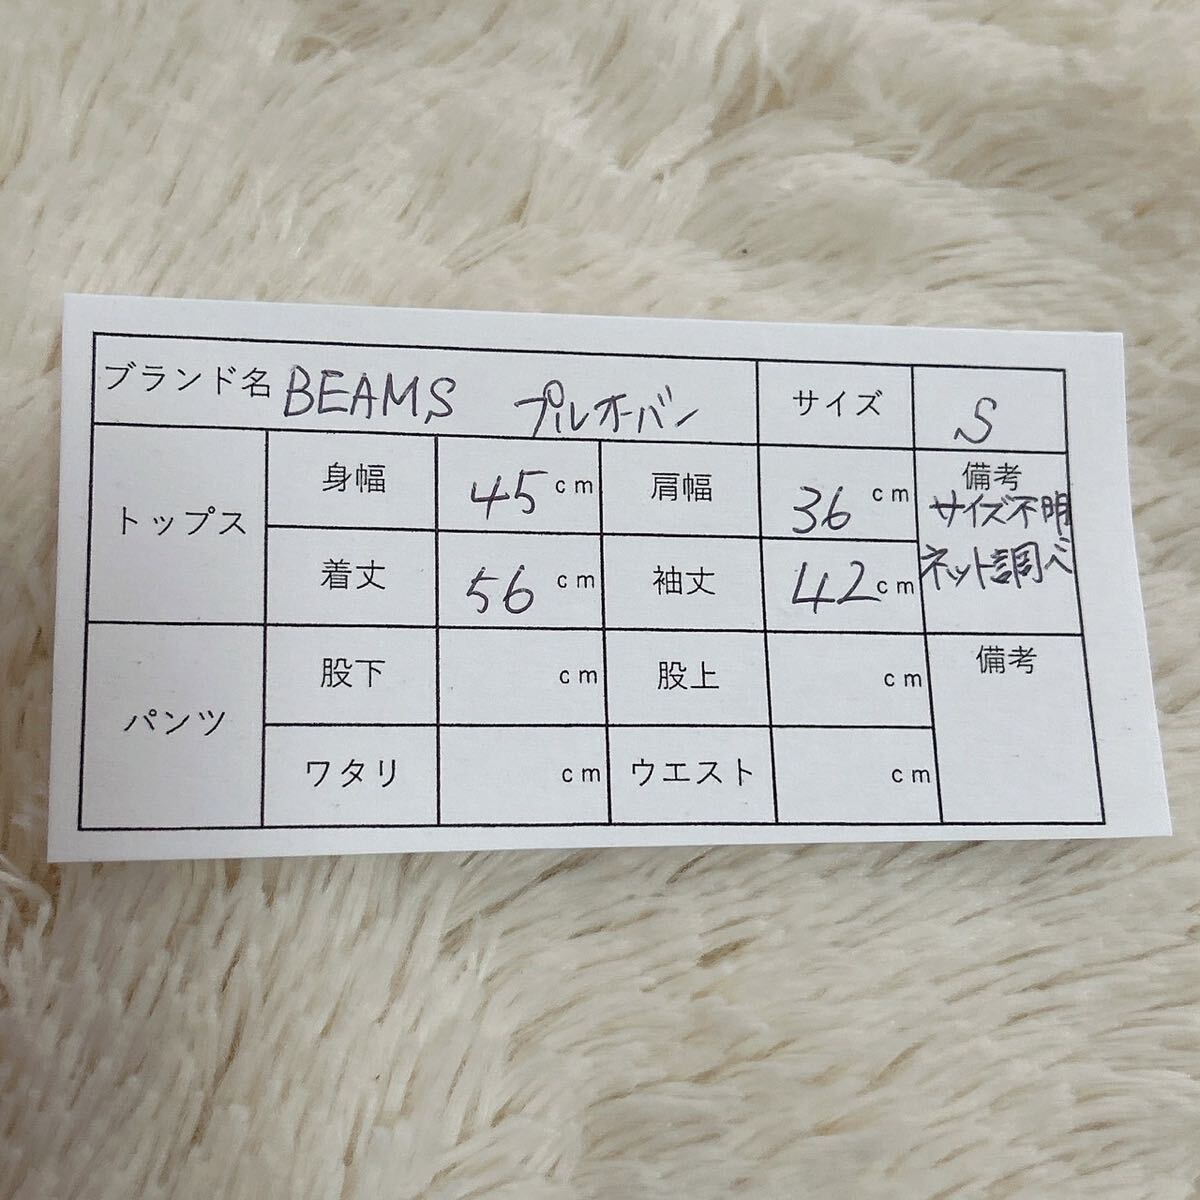 ブランド名 BEAMS プルオーバン サイズ S
トップス 身幅 45 cm 肩幅 36 cm 備考
サイズ不明
着丈 56 cm 袖丈 42 cm ネット調べ
パンツ 股下 cm 股上 cm 備考
ワタリ cm ウエスト cm